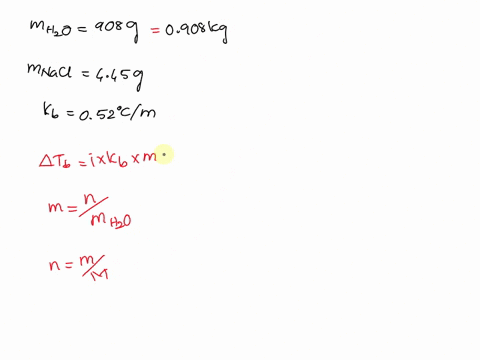 m H₂O = 908 g = 0.908 kg
m NaCl = 4.45 g
K_b = 0.52°C/m
ΔT_b = i × K_b × m
m = n / m H₂O
n = m / M